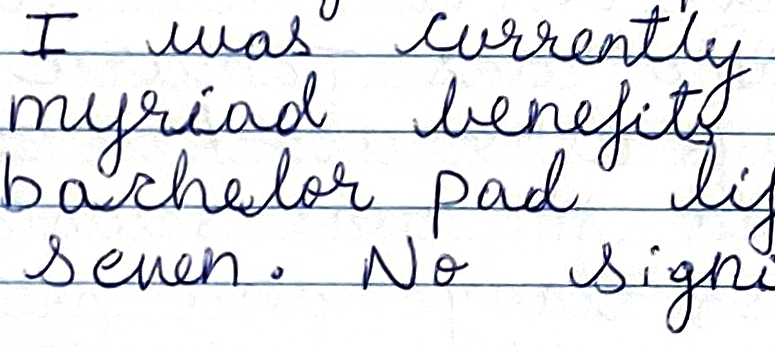 I was currently
myriad benefits
bachelor pad lif
seven. No signi